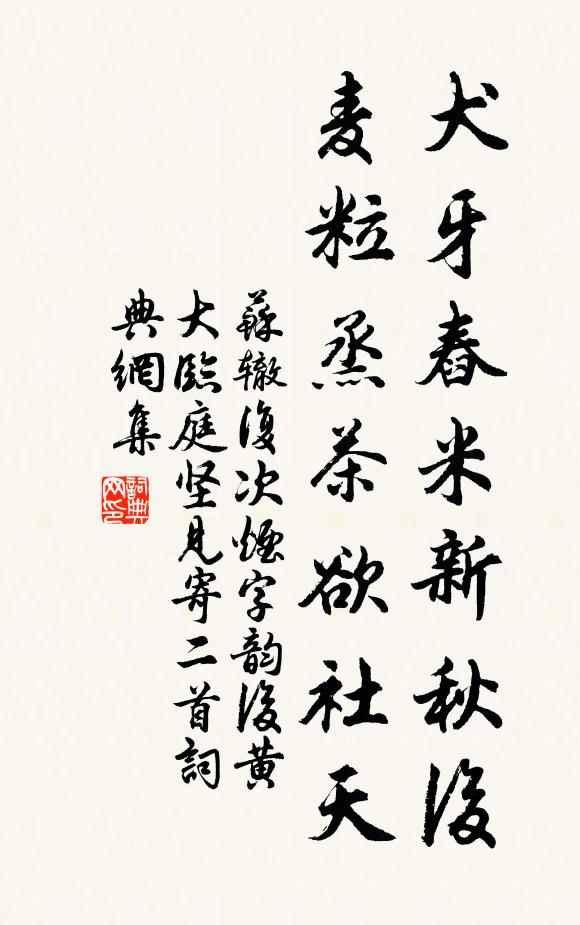 犬牙舂米新秋後
麦粒蒸茶欲社天
蘇轍復次煙字韵後黄
大臨庭坚見寄二首詞
典網集
詞典
网印